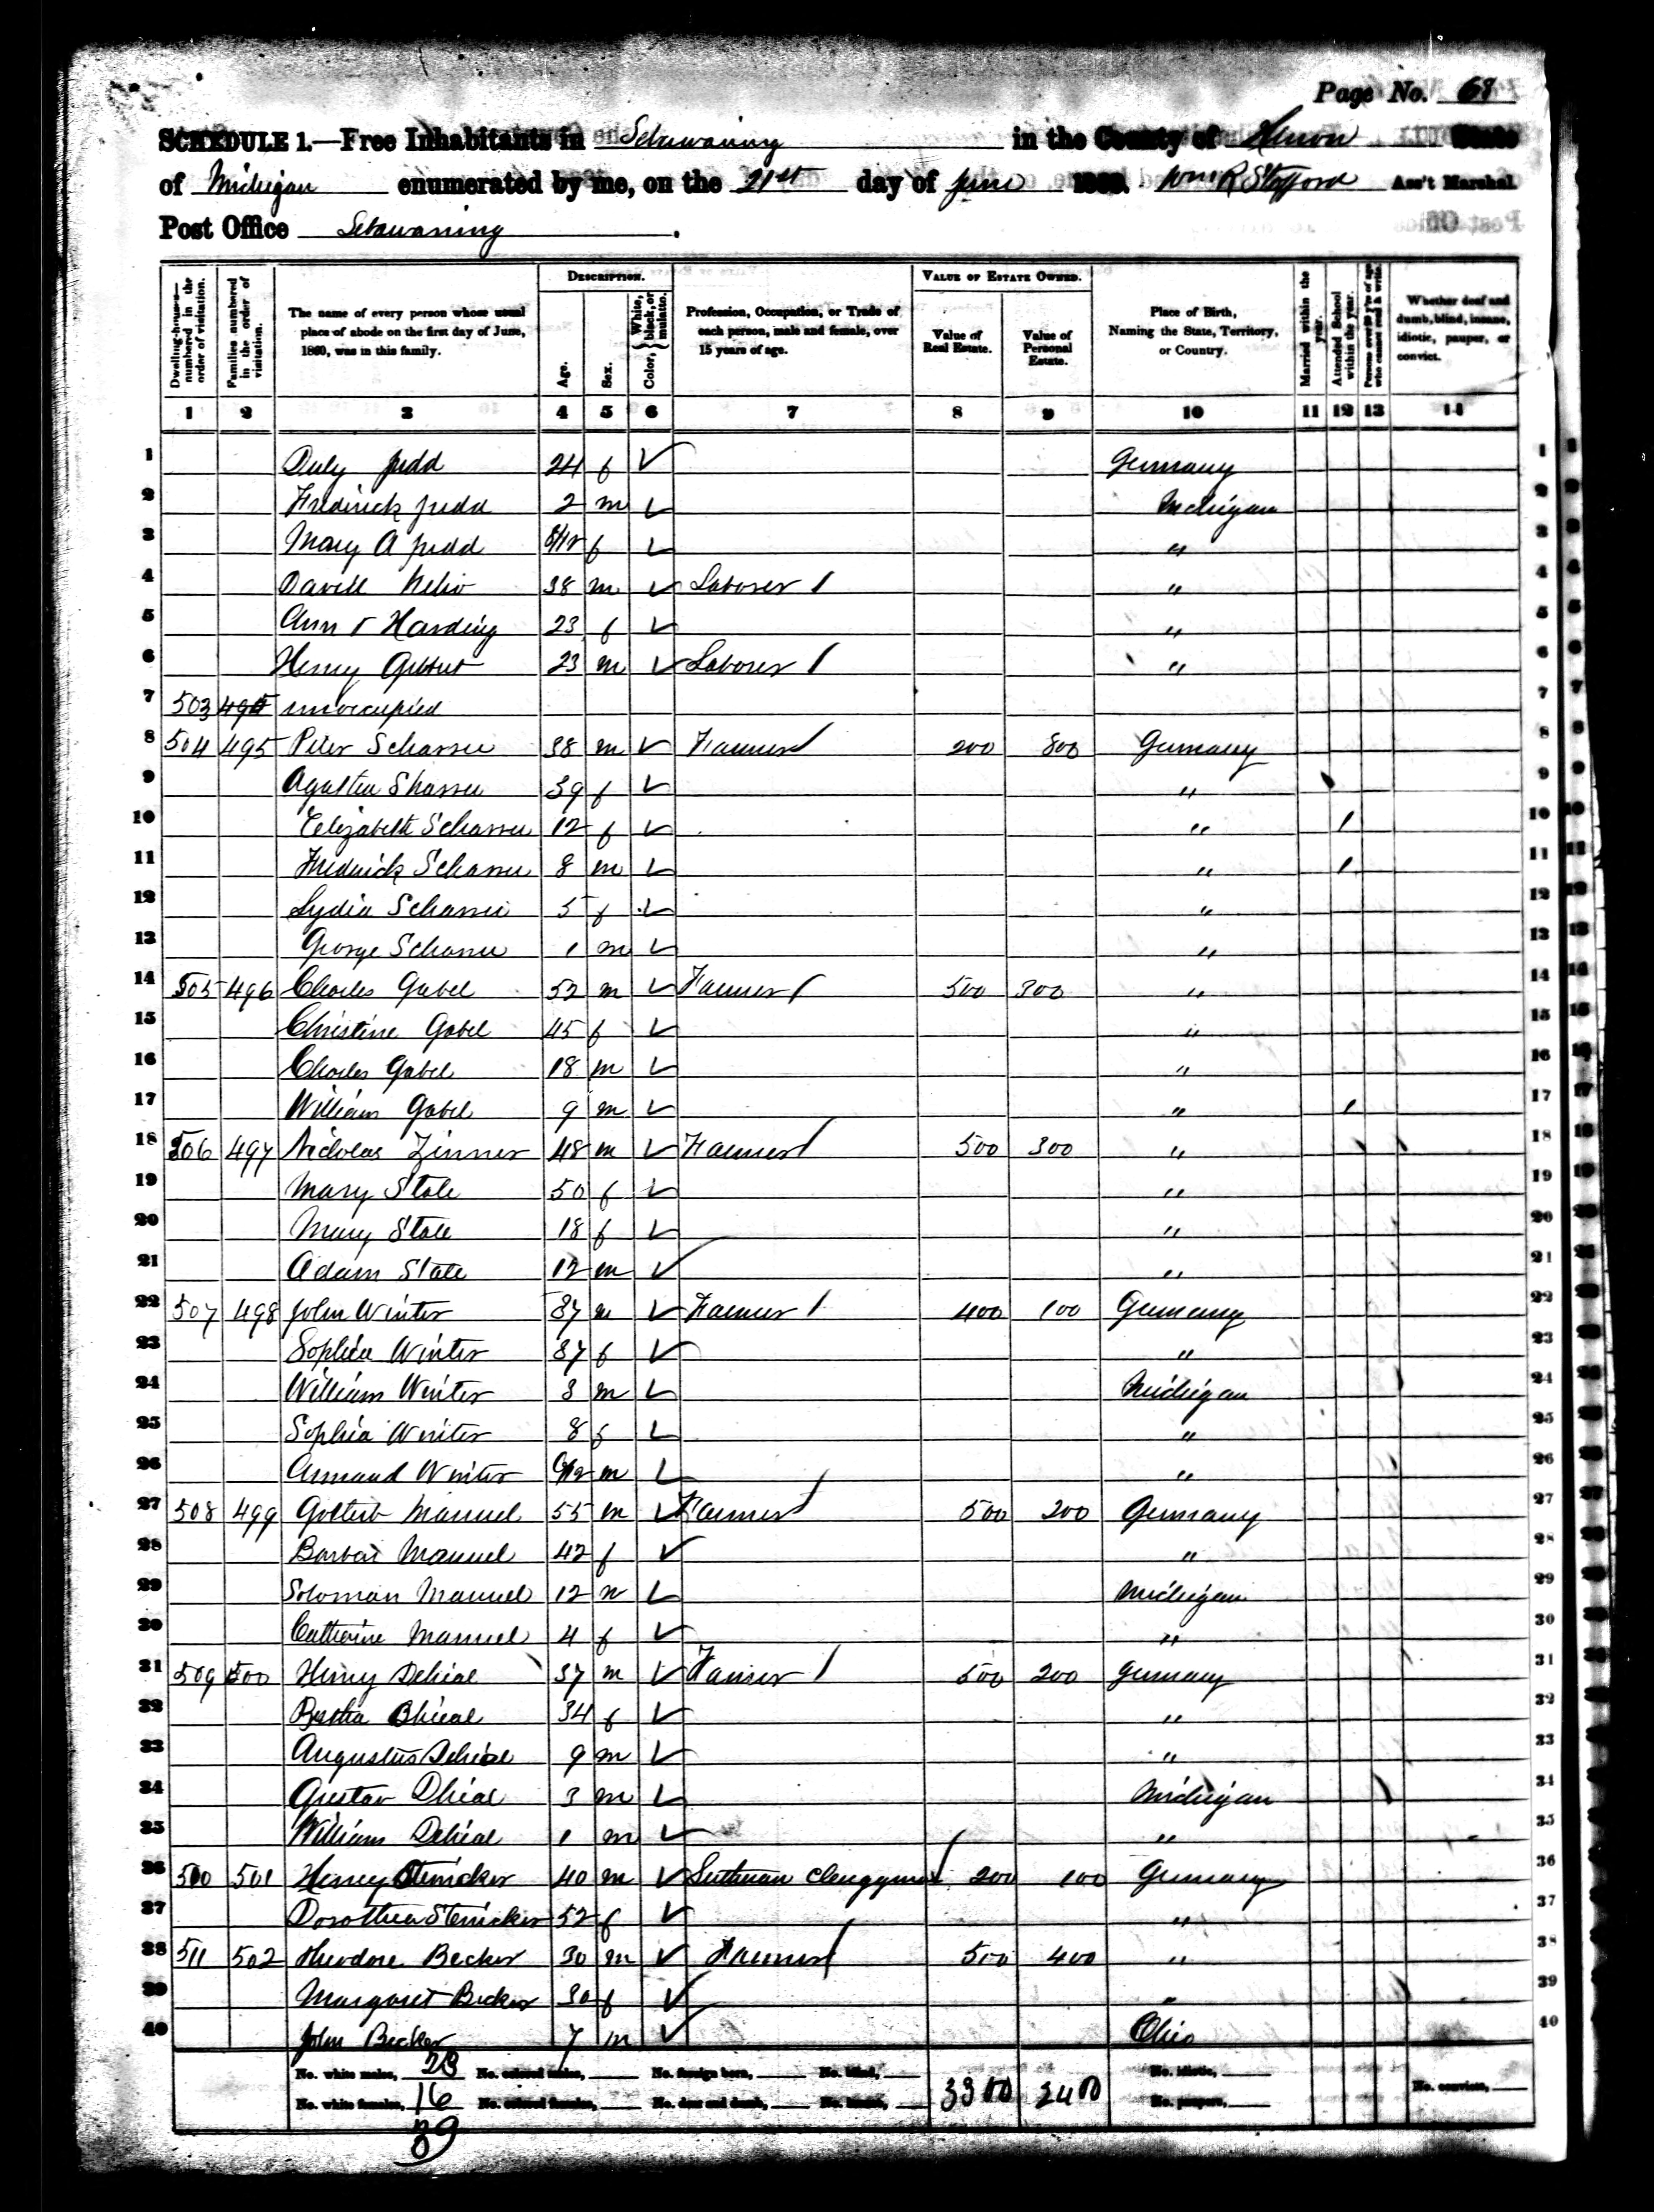 Page No. 68
SCHEDULE 1.—Free Inhabitants in Sebawaing in the County of Huron State
of Michigan enumerated by me, on the 21st day of June 1860. Wm R Stafford Ass't Marshal.
Post Office Sebawaing.
Dwelling-houses—numbered in the order of visitation.
Families numbered in the order of visitation.
The name of every person whose usual place of abode on the first day of June, 1860, was in this family.
Description.
Age.
Sex.
Color, White, black, or mulatto.
Profession, Occupation, or Trade of each person, male and female, over 15 years of age.
Value of Estate Owned.
Value of Real Estate.
Value of Personal Estate.
Place of Birth, Naming the State, Territory, or Country.
Married within the year.
Attended School within the year.
Persons over 20 y'rs of age who cannot read & write.
Whether deaf and dumb, blind, insane, idiotic, pauper, or convict.
1 2 3 4 5 6 7 8 9 10 11 12 13 14
1 Judd 24 f Germany 1
2 Fredirick Judd 2 m Michigan 2
3 Mary A Judd 8/12 f " 3
4 38 m Laborer / " 4
5 Ann Harding 23 f " 5
6 Henry 23 m Laborer / " 6
7 503 unoccupied 7
8 504 495 Peter 38 m Farmer / 200 800 Germany 8
9 39 f " 9
10 Elizabeth 12 f " / 10
11 Fredrick 8 m " / 11
12 Lydia 5 f " 12
13 George 1 m " 13
14 505 496 Charles Gabel 52 m Farmer / 500 300 " 14
15 Christine Gabel 45 f " 15
16 Charles Gabel 18 m " 16
17 William Gabel 9 m " / 17
18 506 497 Nicholas Zinner 48 m Farmer / 500 300 " 18
19 Mary Stale 50 f " 19
20 Mary Stale 18 f " 20
21 Adam Stale 12 m " 21
22 507 498 John Winter 37 m Farmer / 400 100 Germany 22
23 Sophia Winter 37 f " 23
24 William Winter 3 m Michigan 24
25 Sophia Winter 8 f " 25
26 Armand Winter m " 26
27 508 499 Gotleib Manuel 55 m Farmer / 500 200 Germany 27
28 Manuel 42 f " 28
29 Soloman Manuel 12 m Michigan 29
30 Catherine Manuel 4 f " 30
31 509 500 Henry Dehial 37 m Farmer / 500 200 Germany 31
32 34 f " 32
33 Augustus Dehial 9 m " 33
34 Gustav Dhial 3 m Michigan 34
35 William Dehial 1 m " 35
36 510 501 Henry Steincker 40 m Lutheran Clergyman / 200 100 Germany 36
37 Dorothea Steincker 52 f " 37
38 511 502 Theodore Becker 30 m Farmer / 500 400 " 38
39 Margaret Becker 30 f " 39
40 John Becker 7 m Ohio 40
No. white males, 23 No. colored males, No. foreign born, No. blind, No. idiotic,
No. white females, 16 No. colored females, No. deaf and dumb, No. insane, 3300 2400 No. paupers, No. convicts,
39